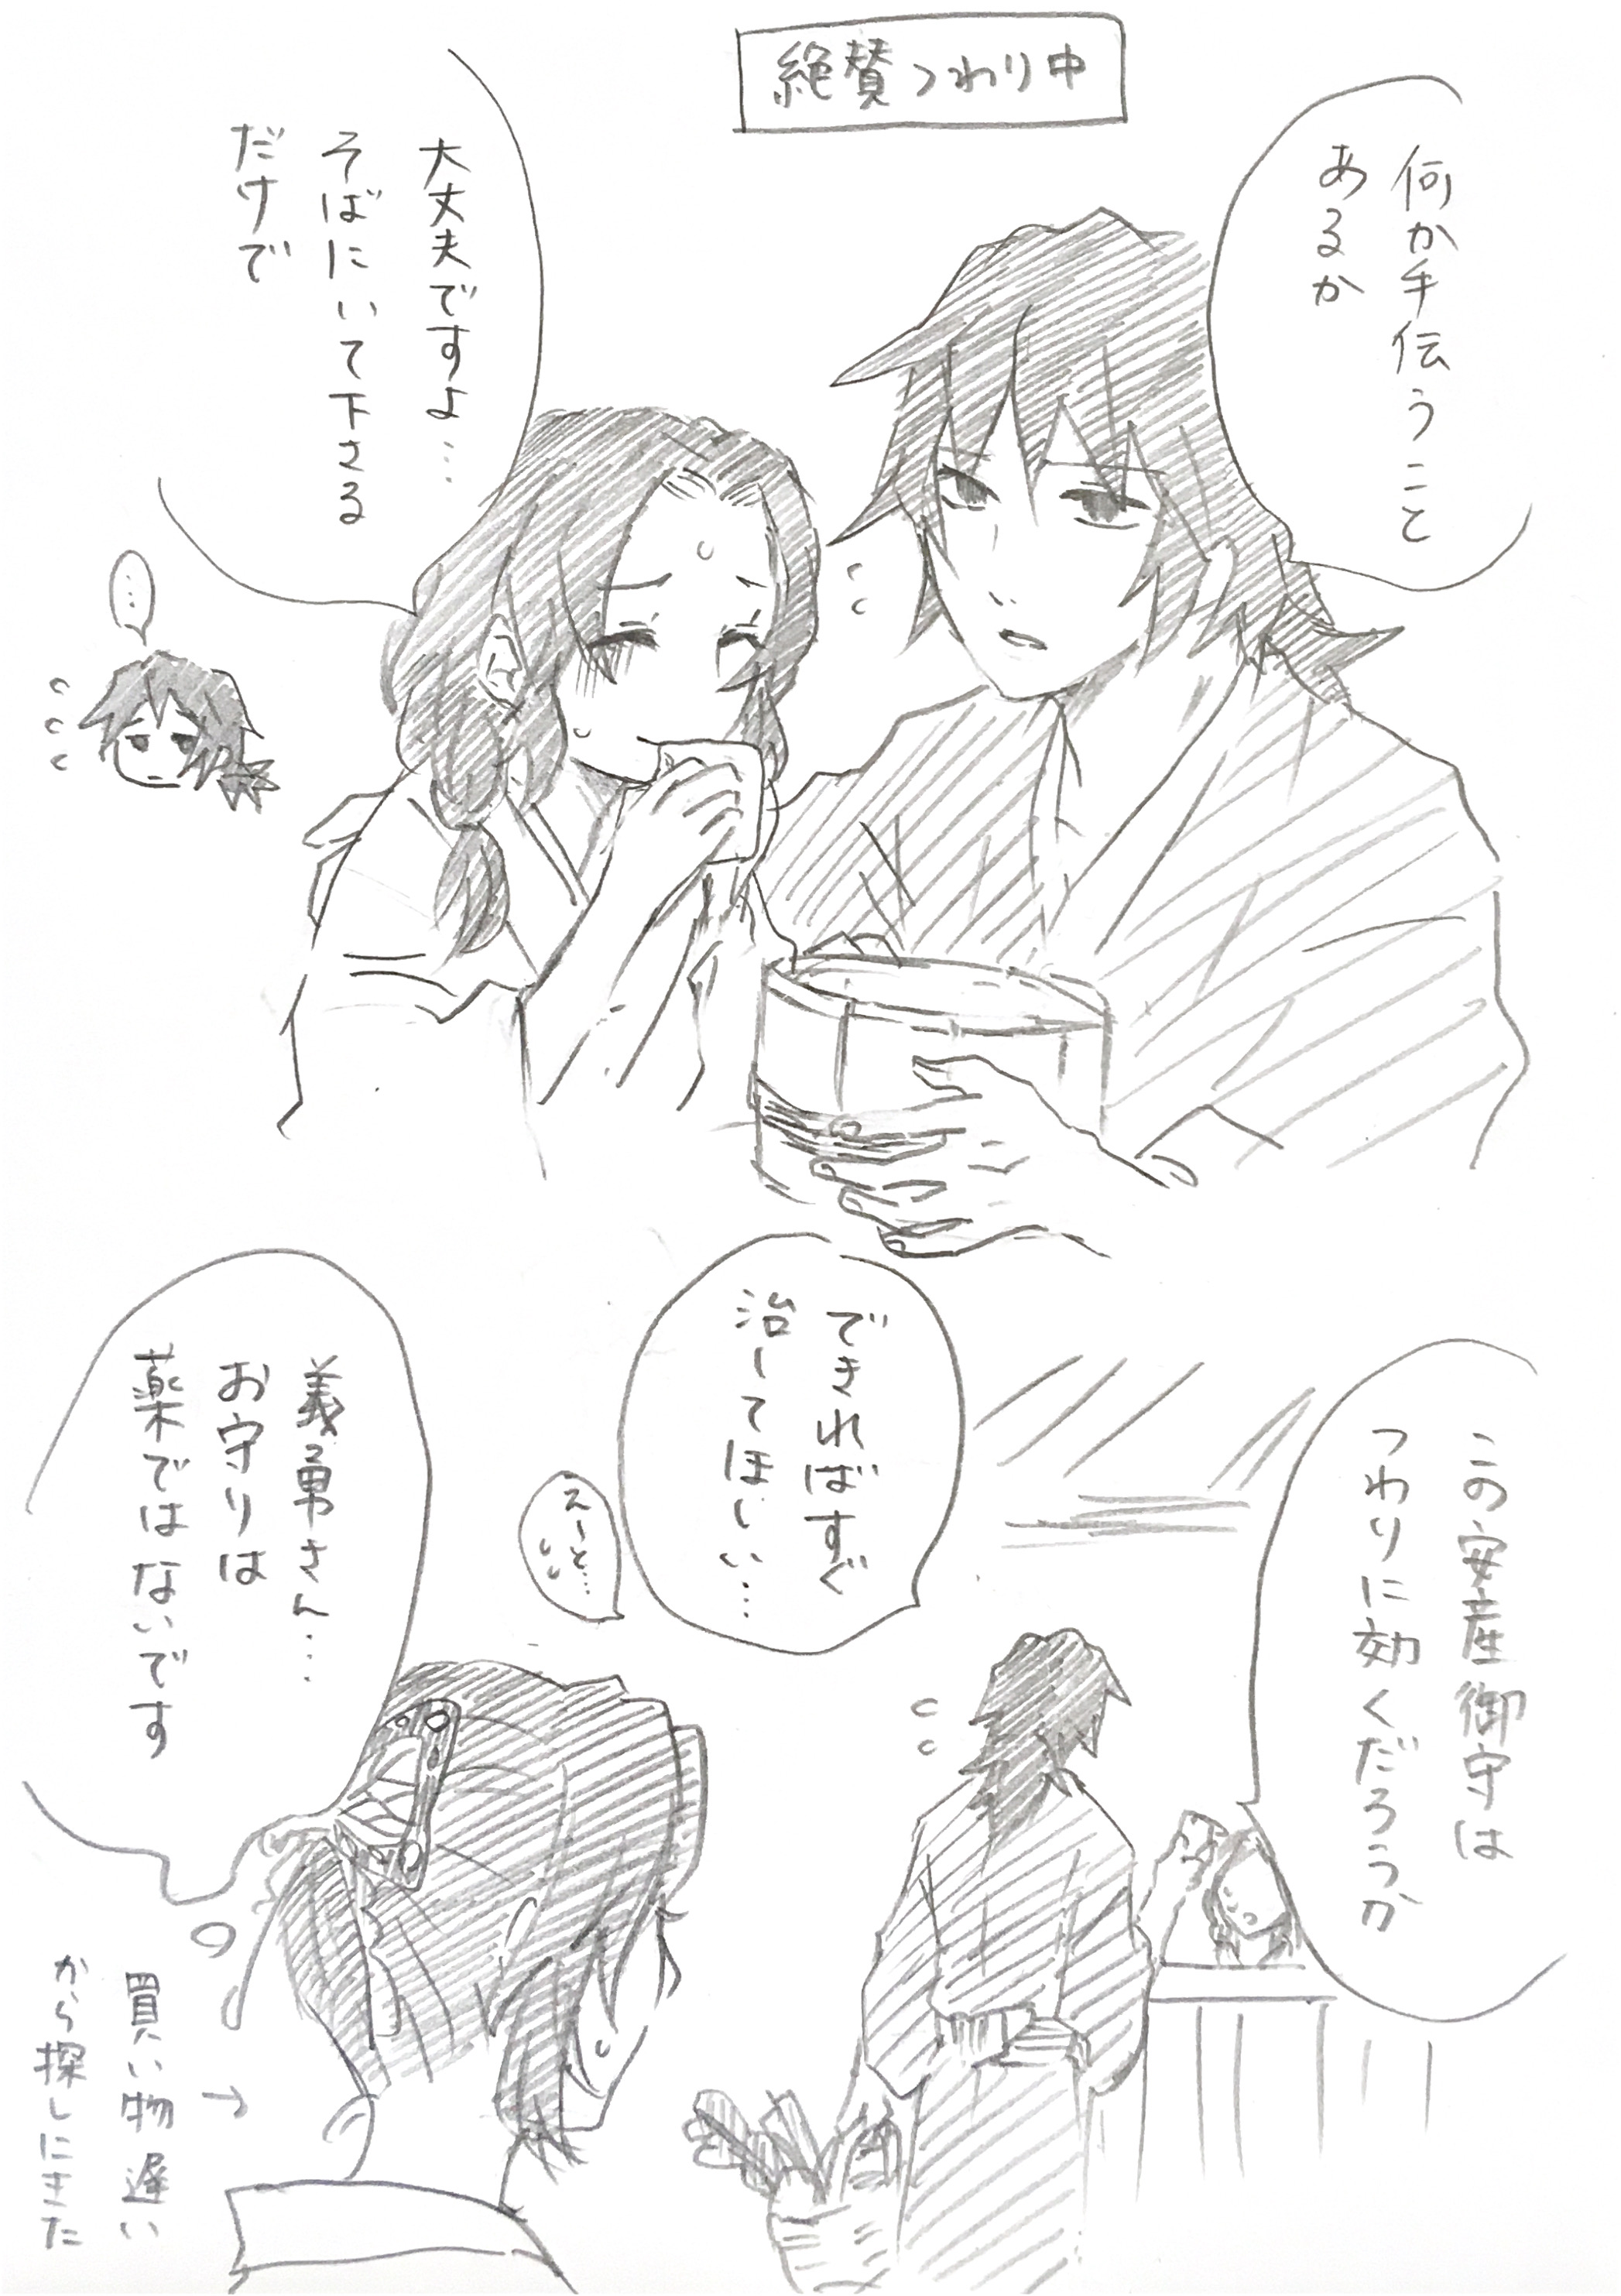 絶賛つわり中
何か手伝うこと
あるか
大丈夫ですよ…
そばにいて下さる
だけで
…
この安産御守は
つわりに効くだろうか
できればすぐ
治してほしい…
えーと…
義勇さん…
お守りは
薬ではないです
買い物遅い
から探しにきた
→